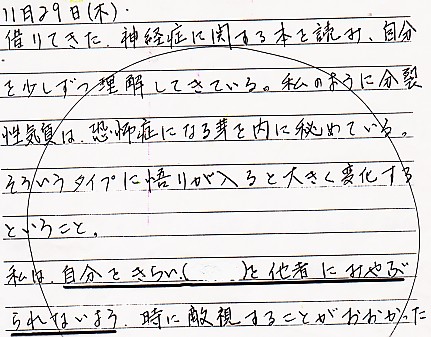 11月29日(木).
借りてきた、神経症に関する本を読み、自分
を少しずつ理解してきている。私のように分裂
性気質は、恐怖症になる芽を内に秘めている。
そういうタイプに悟りが入ると大きく変化する
ということ。
私は、自分をきらい( )を他者にみやぶ
られないよう、時に敵視することがおおかった